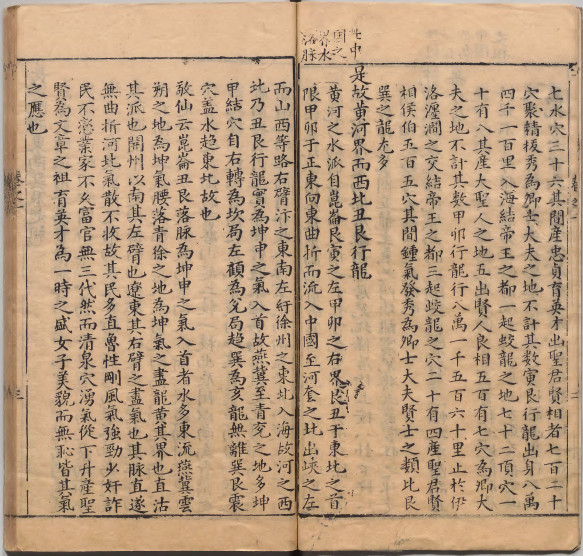 七水穴三十六其間產忠貞育英才出聖君賢相者七百二十
穴聚精拔秀為鄉士大夫之地不計其數寅艮行龍出身八萬
四千一百里入海結帝王之都一起蛟龍之地七十二頂穴一
十有八其產大聖人之地五出賢人良相五百有七穴為鄉大
夫之地不計其數甲卯行龍行八萬一千五百六十里止於伊
洛瀍澗之交結帝王之都三起蛟龍之穴二十有四產聖君賢
相侯伯五百五穴其間鍾氣發秀為鄉士大夫賢士之類比艮
巽之龍尤多
是故黃河界而西北丑艮行龍
世中
國之
界水
洛脉
黃河之水派自崑崙艮寅之左甲卯之右界艮丑于東北之首
限甲卯于正東向東曲折而流入中國至河套之北出峽之左
而山西等路右臂汴之東南左紆徐州之東北入海故河之西
北乃丑艮行龍實為坤申之氣入首故燕冀至青兗之地多坤
甲結穴自右轉為坎局左顧為兌局趨巽為亥龍無離巽艮震
穴蓋水趨東北故也
敖仙云崑崙丑艮落脉為坤申之氣入首者水多東流燕冀雲
朔之地為坤氣腰落青徐之地為坤氣之盡龍黃其界也直沽
其派也關州以南其左臂也遼東其右臂之盡氣也其脉直遂
無曲折河北氣散不收故其民多直魯性剛風氣強勁少奸詐
民不毫業家不久富官無三代然而清泉穴湧氣從下升產聖
賢為文章之祖育英才為一時之盛女子美貌而無恥皆其氣
之應也
三